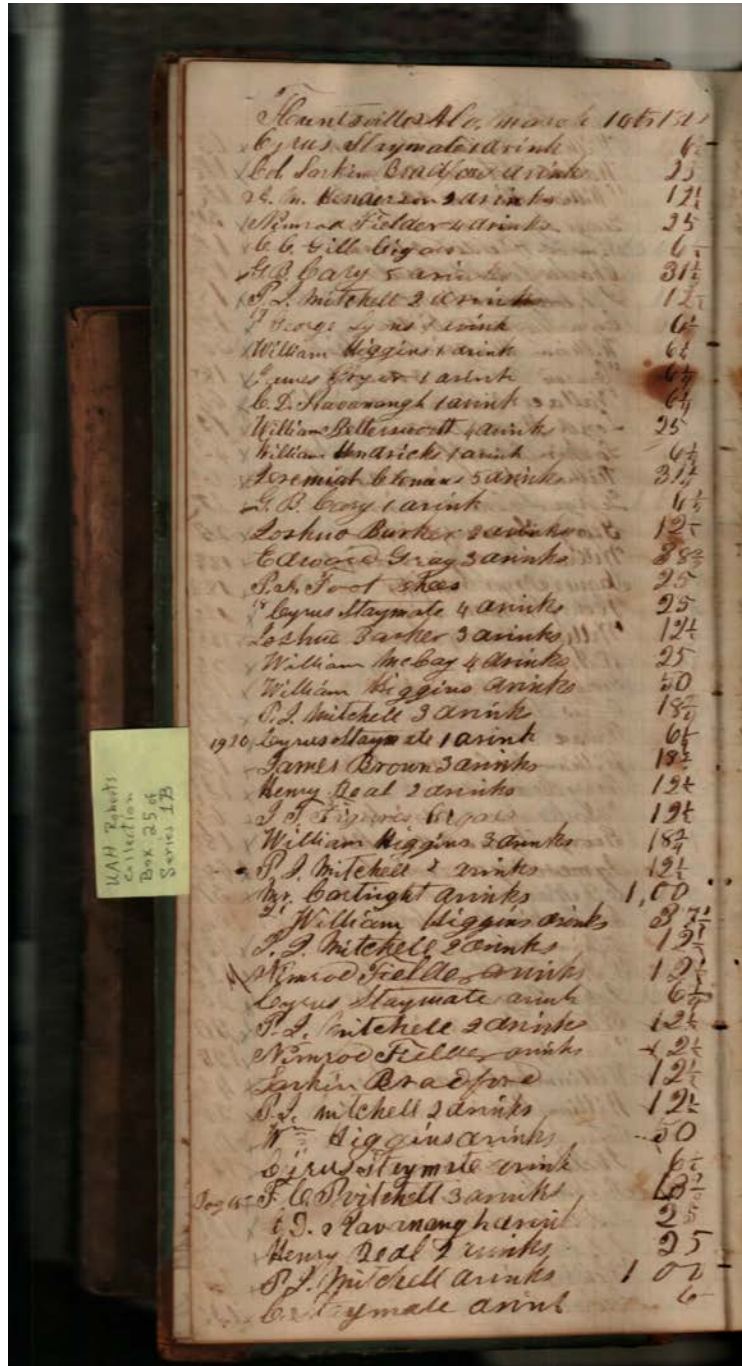 Huntsville Ala, March
Cyrus Staymate 1 drink 6¼
Col Larkin Bradford drinks 25
Henderson 2 drinks 12½
Nimrod Fielder 4 drinks 25
C. C. Gill Cigars 6¼
G. B. Cary 5 drinks 31¼
P. J. Mitchell 2 drinks 12½
17 George Lyons 1 drink 6¼
William Higgins 1 drink 6¼
1 drink 6¼
C. D. Kavanaugh 1 drink 6¼
William Bettersworth 4 drinks 25
William Hendricks 1 drink 6¼
Jeremiah Clemens 5 drinks 31¼
G. B. Cary 1 drink 6¼
Joshua Barker 2 drinks 12½
Edward Gray 3 drinks 18¾
Foot 25
18 Cyrus Staymate 4 drinks 25
Joshua Barker 3 drinks 12½
William McCay 4 drinks 25
William Higgins drinks 50
P. J. Mitchell 3 drinks 18¾
19 20 Cyrus Staymate 1 drink 6¼
James Brown 3 drinks 18¾
Henry Deal 2 drinks 12½
Cigars 12½
William Higgins 3 drinks 18¾
P. J. Mitchell 2 drinks 12½
Mr. Cartright drinks 1,00
21 William Higgins drinks 37½
P. J. Mitchell 2 drinks 12½
Nimrod Fielder drinks 12½
Cyrus Staymate drink 6¼
P. J. Mitchell 2 drinks 12½
Nimrod Fielder drinks 12½
Larkin Bradford 12½
P. J. Mitchell 2 drinks 12½
Wm Higgins drinks 50
Cyrus Staymate drink 6¼
3 drinks 18¾
C. D. Kavanaugh drink 25
Henry Deal 2 drinks 25
P. J. Mitchell drinks 1 00
C. Staymate drink 6
UAH Roberts
Collection
Box 25 of
Series 1B